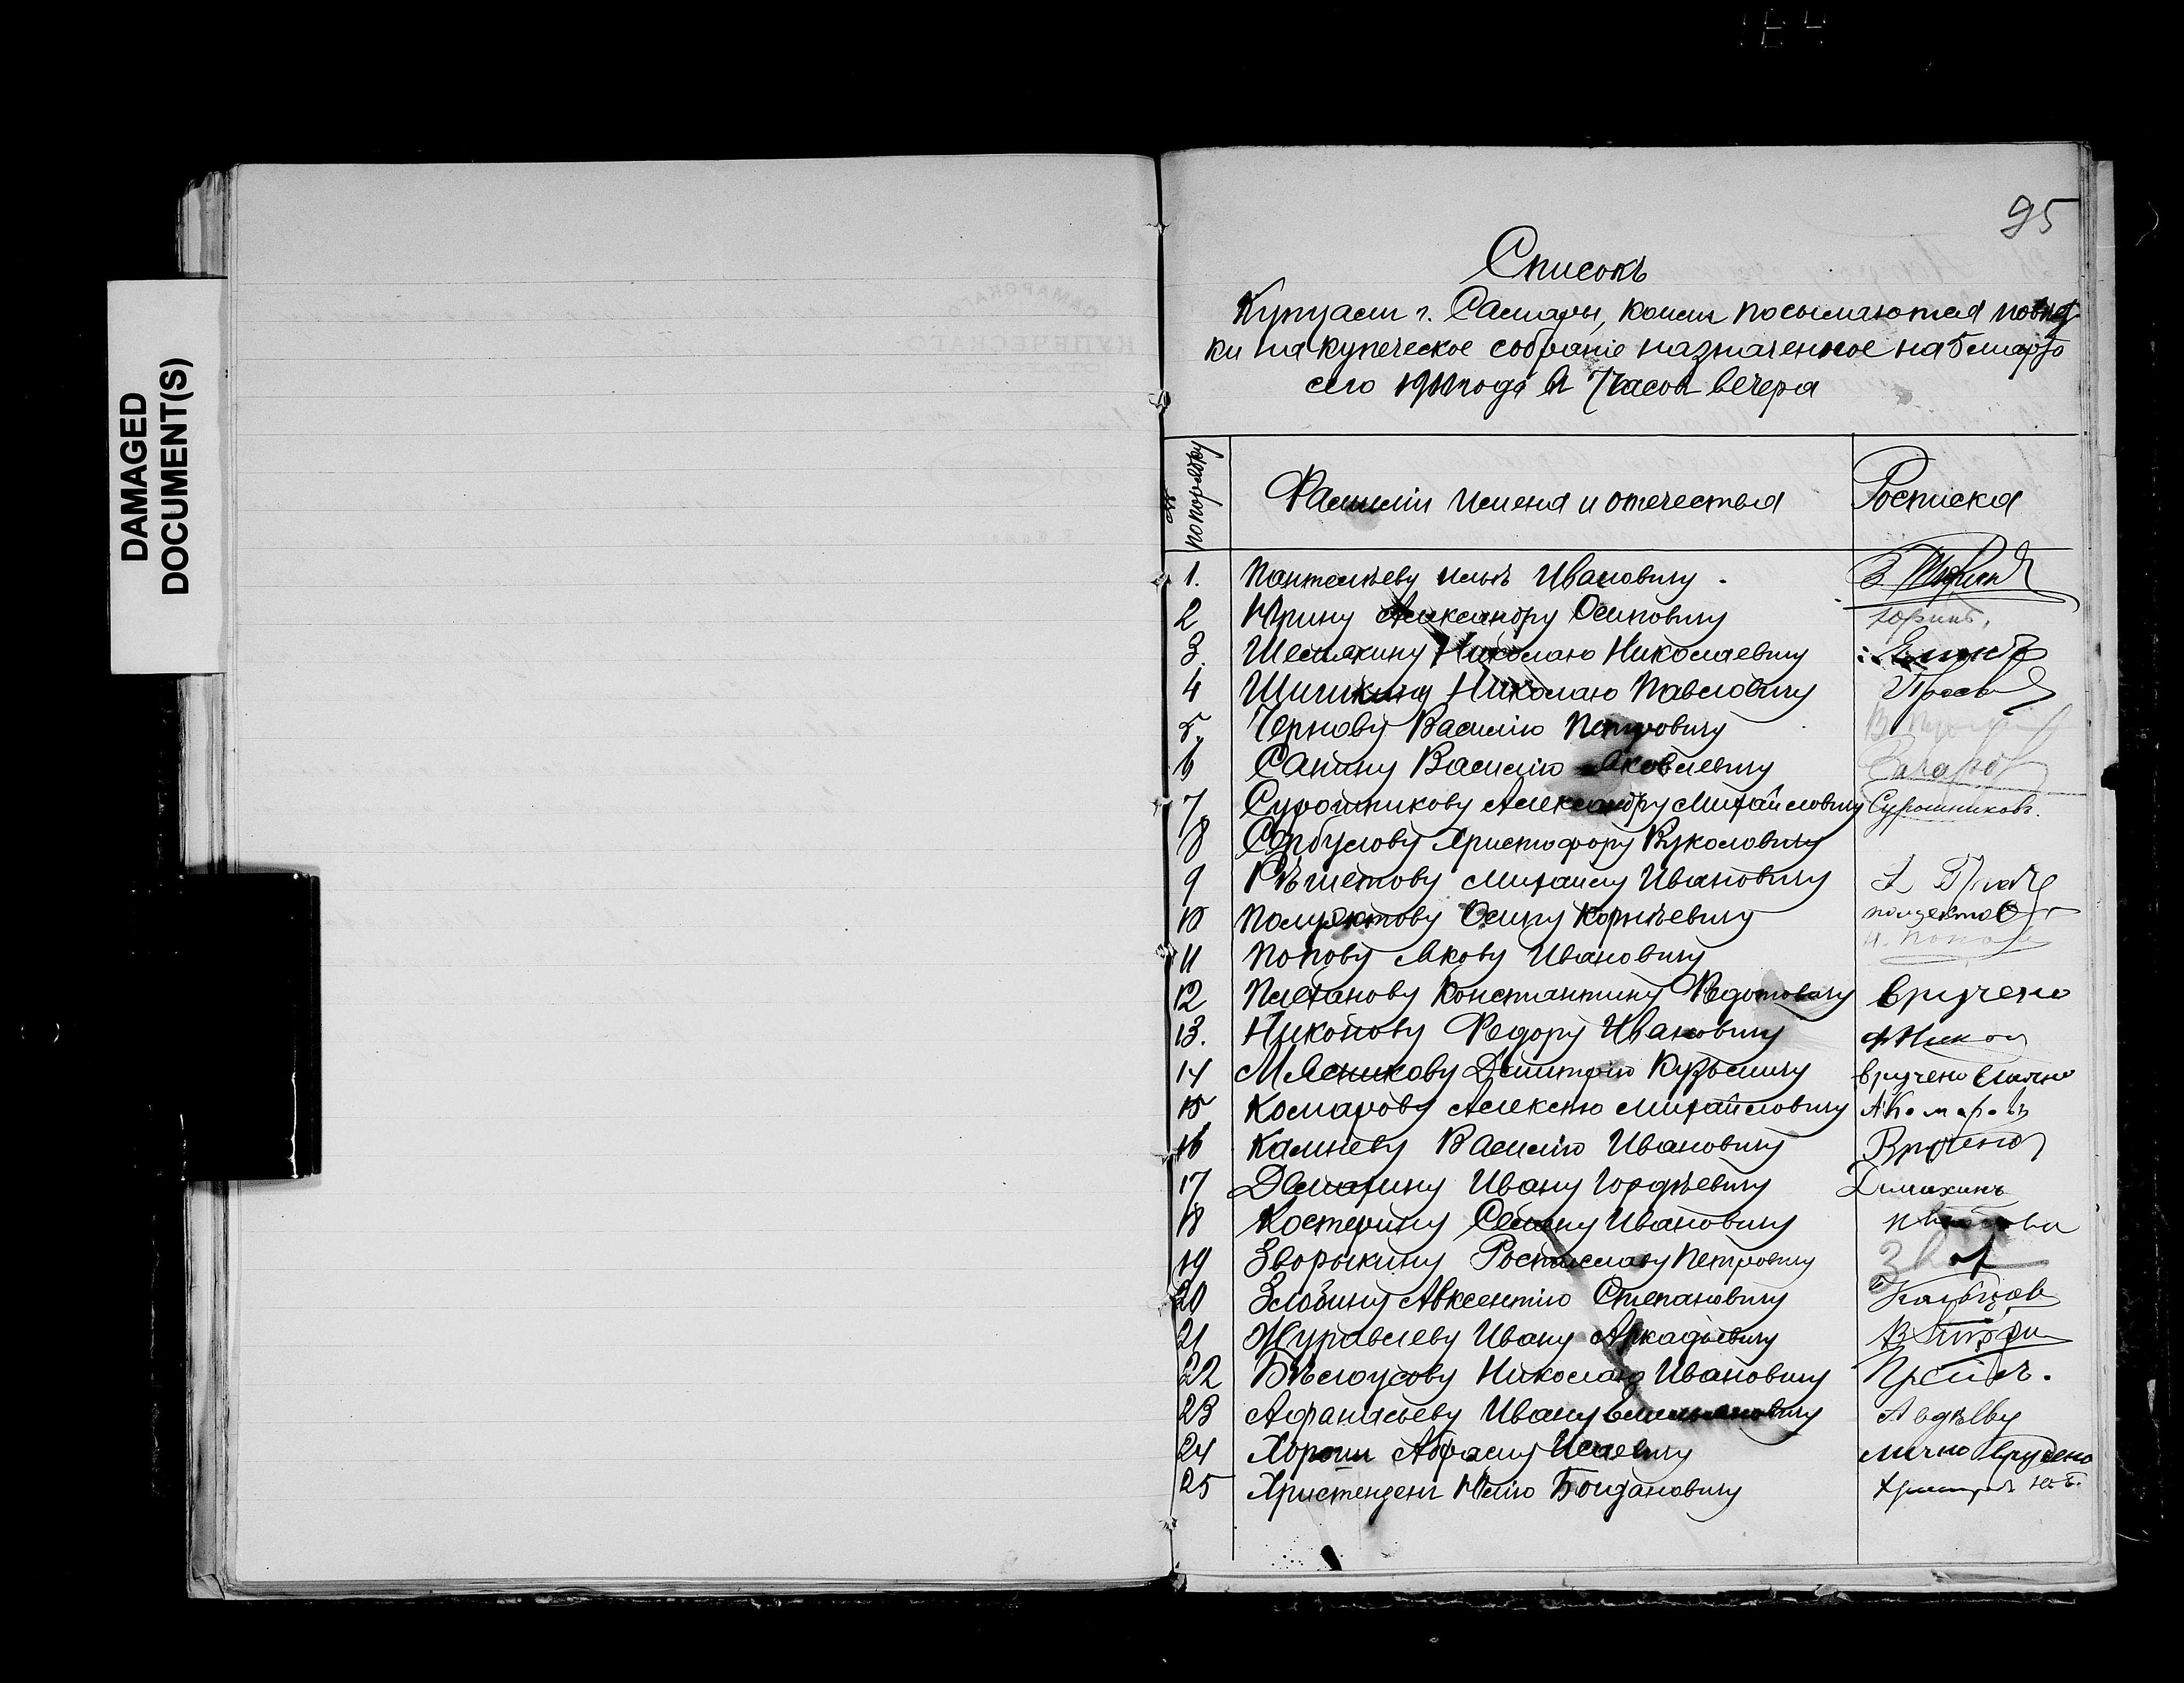 DAMAGED
DOCUMENT(S)
САМАРСКАГО
КУПЕЧЕСКАГО
95
Списокъ
Купцамъ г. Самары, коимъ посылаются повѣст-
ки на купеческое собраніе назначенное на 5 марта
сего 1911 года въ 7 часовъ вечера
№ по порядку Фамиліи имена и отечества Росписка
1. Пантелѣеву Ильѣ Ивановичу.
2 Юрину Александру Осиповичу Юринъ,
3. Шемякину Николаю Николаевичу
4 Шишкину Николаю Павловичу
5. Чернову Василію Петровичу
6 Санину Василію Яковлевичу
7 Сурошникову Александру Михайловичу Сурошниковъ.
8 Сербулову Христофору Вуколовичу
9 Рѣшетову Михаилу Ивановичу
10 Полуектову Осипу Корнѣевичу полуектов
11 Попову Якову Ивановичу
12 Плеханову Константину Федотовичу вручено
13. Никонову Федору Ивановичу
14 Мясникову Дмитрію Кузьмичу вручено
15 Комарову Алексѣю Михайловичу А Комаровъ
16 Калиневу Василію Ивановичу Вручено
17 Демахину Ивану Гордѣевичу Димахинъ
18 Костерину Семену Ивановичу
19 Зворыкину Ростиславу Петровичу
20 Злобину Авксентію Степановичу
21 Журавлеву Ивану Аркадьевичу
22 Бѣлоусову Николаю Ивановичу
23 Афанасьеву Ивану Емельяновичу
24 Хорошъ Абраму Исаевичу лично вручено
25 Христензенъ Юлію Богдановичу